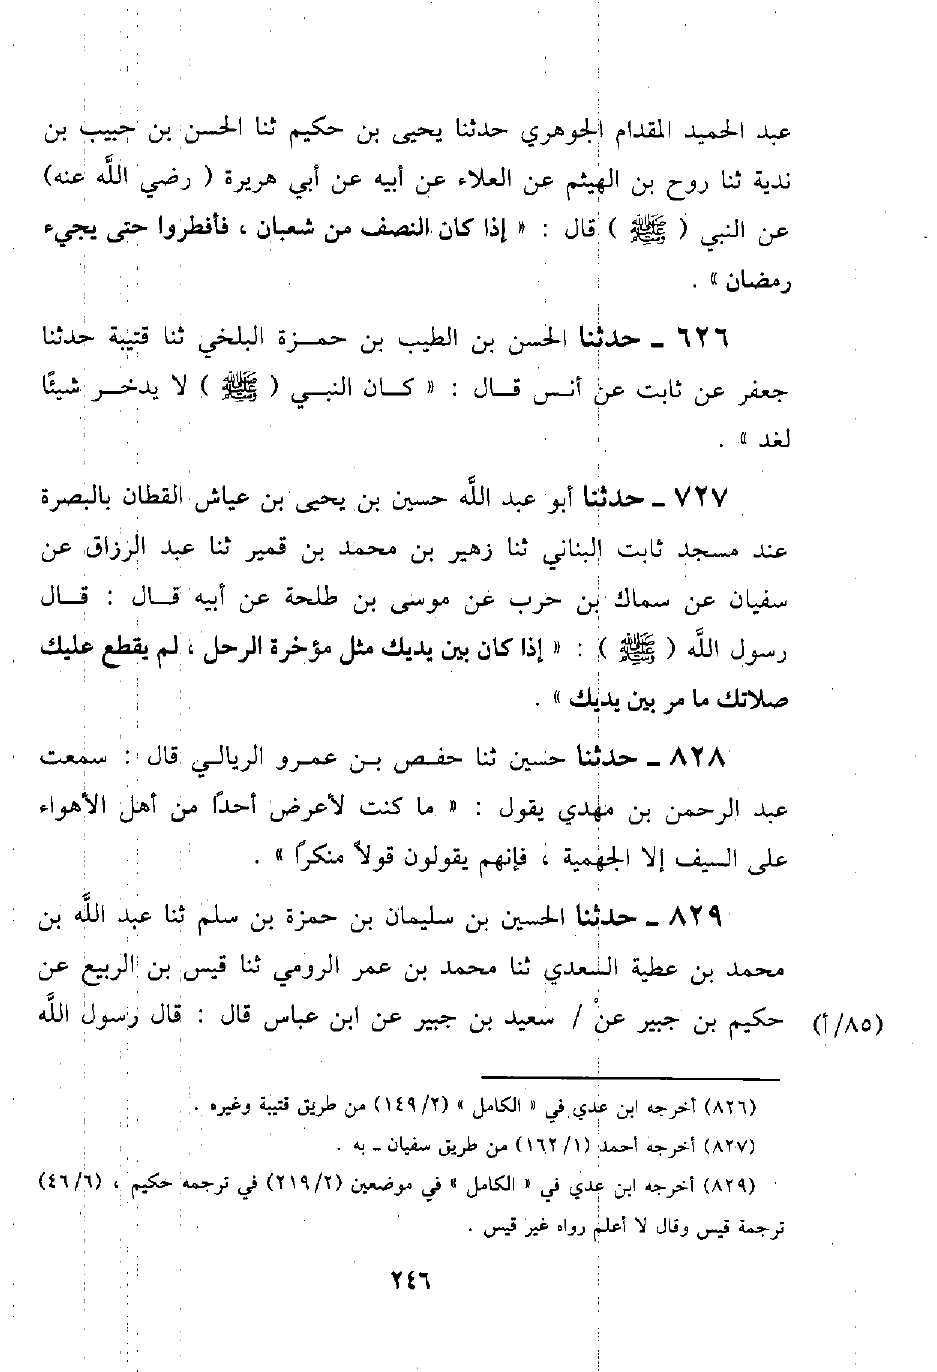 عبد الحميد المقدام الجوهري حدثنا يحيى بن حكيم ثنا الحسن بن حبيب بن
ندبة ثنا روح بن الهيثم عن العلاء عن أبيه عن أبي هريرة ( رضي الله عنه)
عن النبي ( ﷺ ) قال : « إذا كان النصف من شعبان ، فأفطروا حتى يجيء
رمضان » .
٦٢٦ ـ حدثنا الحسن بن الطيب بن حمزة البلخي ثنا قتيبة حدثنا
جعفر عن ثابت عن أنس قال : « كان النبي ( ﷺ ) لا يدخر شيئًا
لغد » .
٧٢٧ ـ حدثنا أبو عبد الله حسين بن يحيى بن عياش القطان بالبصرة
عند مسجد ثابت البناني ثنا زهير بن محمد بن قمير ثنا عبد الرزاق عن
سفيان عن سماك بن حرب عن موسى بن طلحة عن أبيه قال : قال
رسول الله ( ﷺ ) : « إذا كان بين يديك مثل مؤخرة الرحل ، لم يقطع عليك
صلاتك ما مر بين يديك » .
٨٢٨ ـ حدثنا حسين ثنا حفص بن عمرو الربالي قال : سمعت
عبد الرحمن بن مهدي يقول : « ما كنت لأعرض أحدًا من أهل الأهواء
على السيف إلا الجهمية ، فإنهم يقولون قولاً منكرًا » .
٨٢٩ ـ حدثنا الحسين بن سليمان بن حمزة بن سلم ثنا عبد الله بن
محمد بن عطية السعدي ثنا محمد بن عمر الرومي ثنا قيس بن الربيع عن
(٨٥/أ) حكيم بن جبير عن / سعيد بن جبير عن ابن عباس قال : قال رسول الله
(٨٢٦) أخرجه ابن عدي في « الكامل » (١٤٩/٢) من طريق قتيبة وغيره .
(٨٢٧) أخرجه أحمد (١٦٢/١) من طريق سفيان ـ به .
(٨٢٩) أخرجه ابن عدي في « الكامل » في موضعين (٢١٩/٢) في ترجمه حكيم ، (٤٦/٦)
ترجمة قيس وقال لا أعلم رواه غير قيس .
٢٤٦